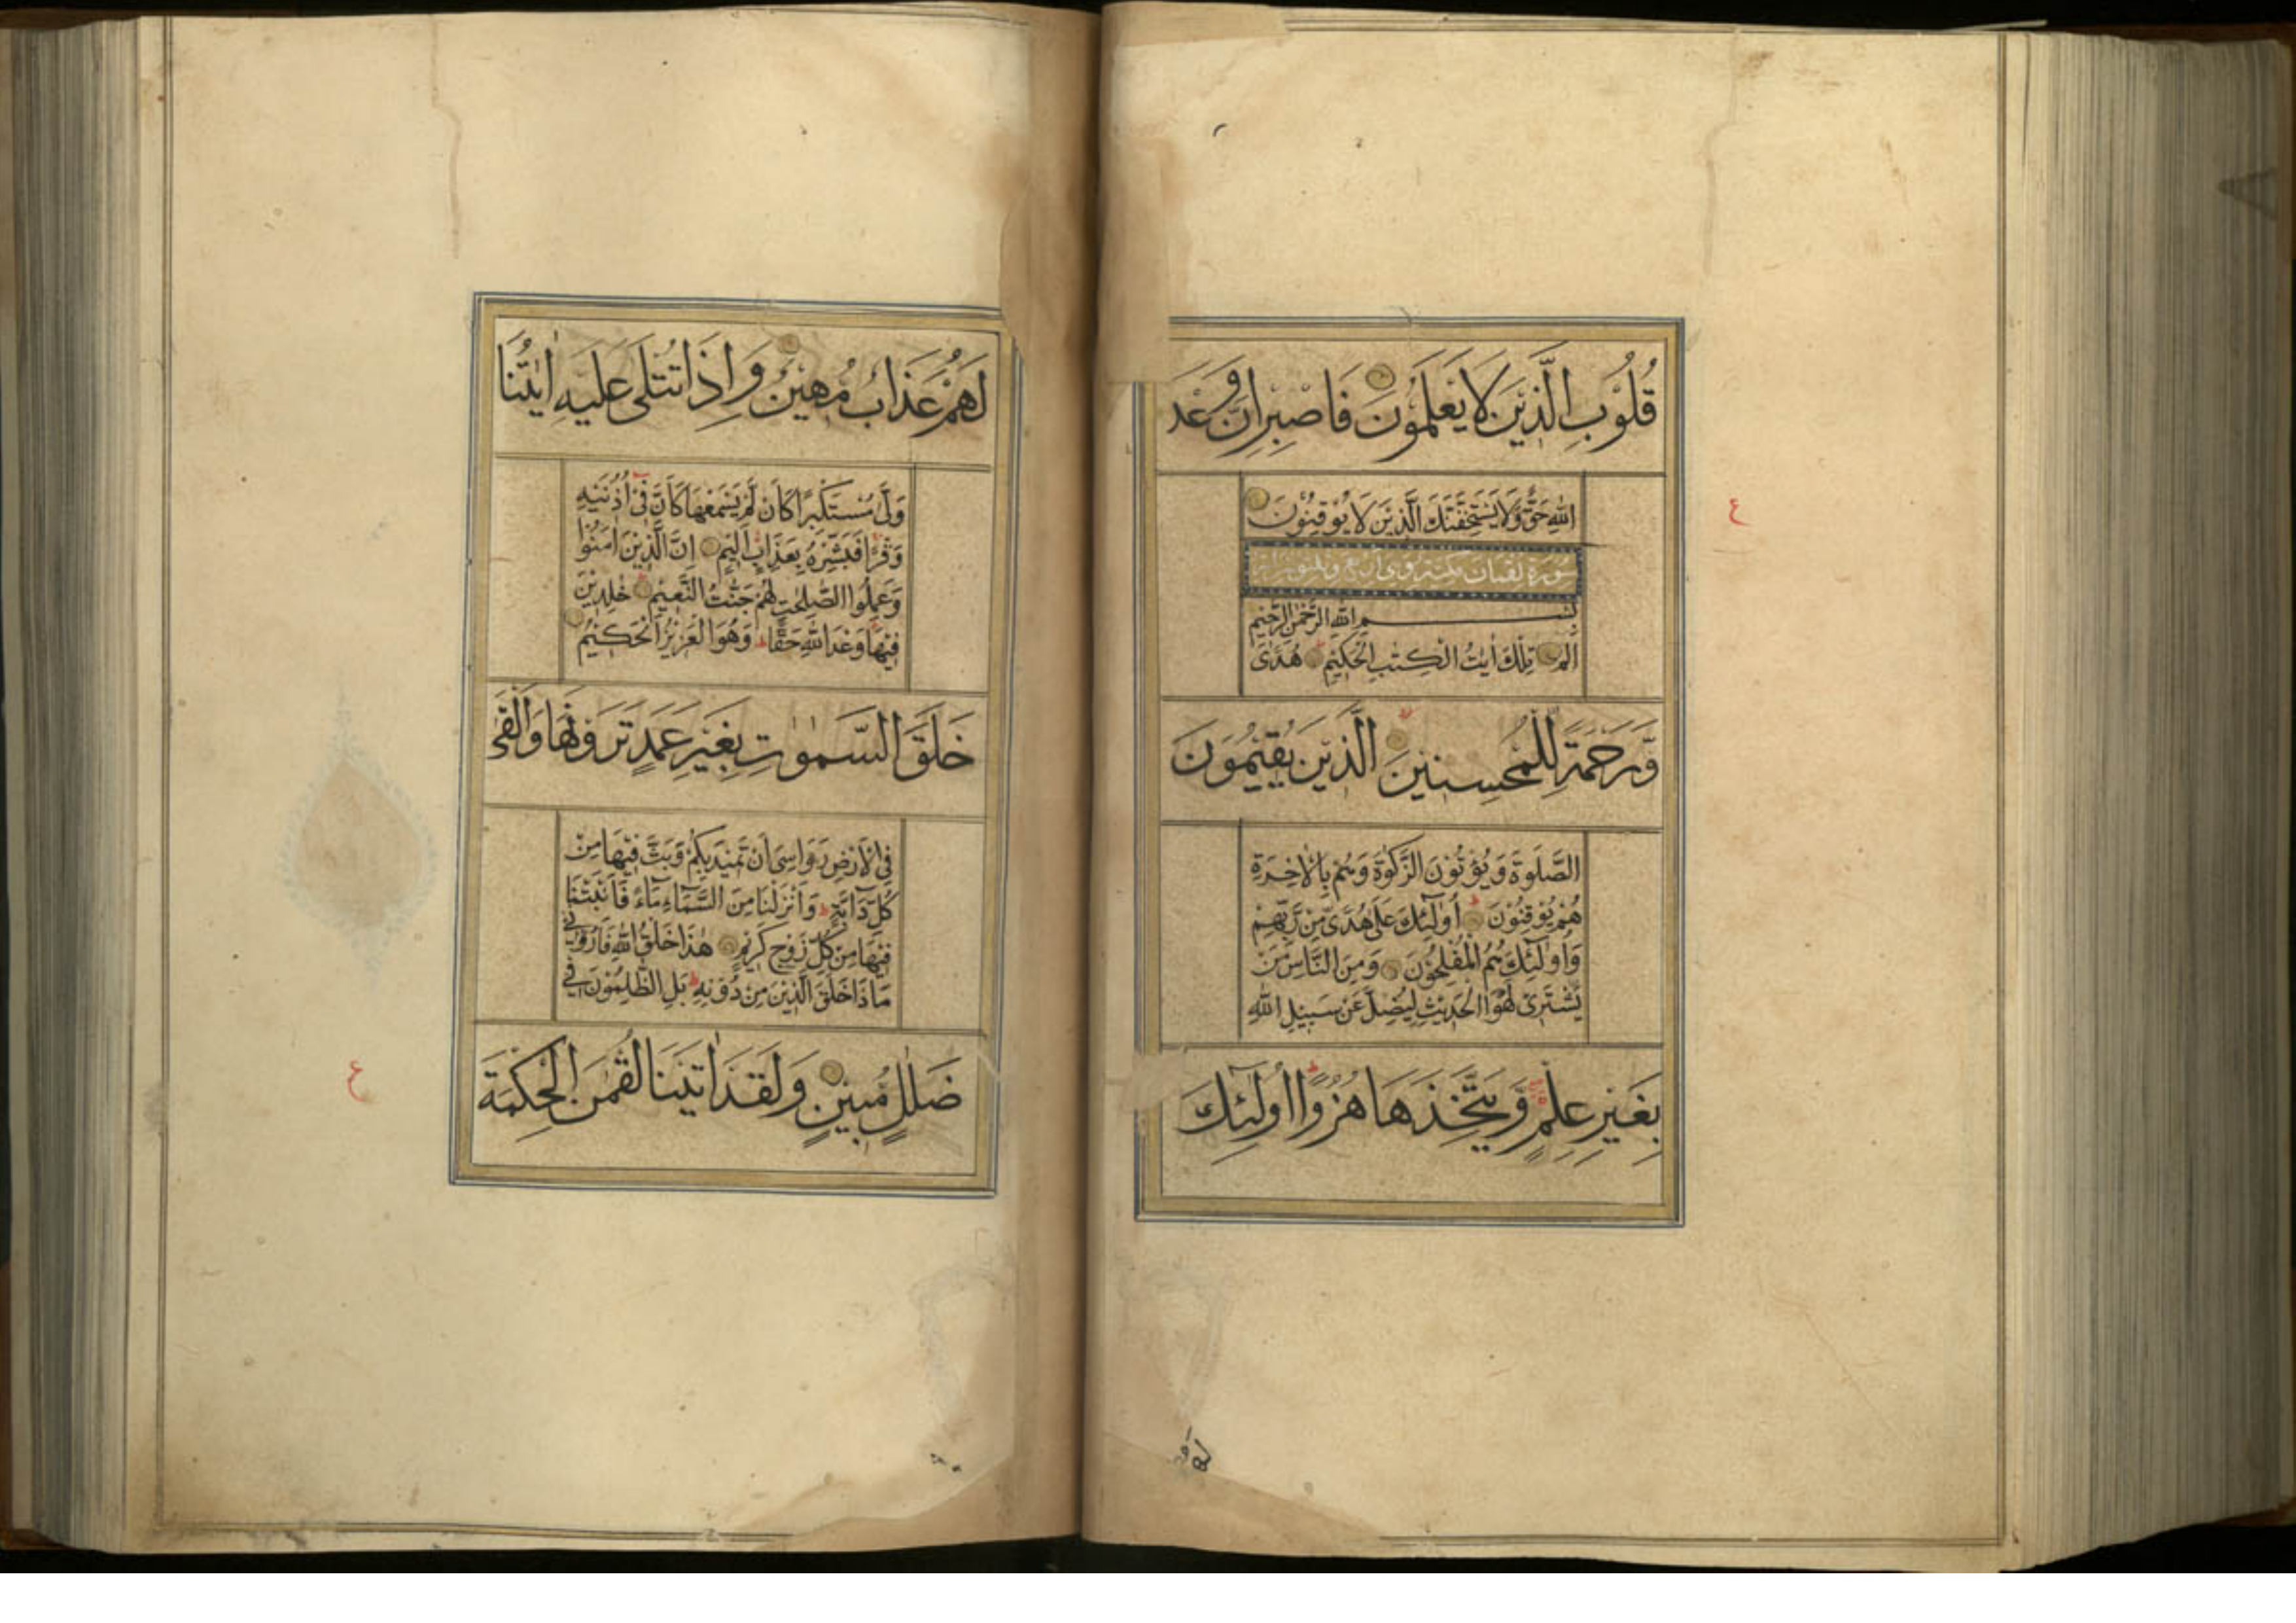 قُلُوبِ الَّذِينَ لَا يَعْلَمُونَ فَاصْبِرْ إِنَّ وَعْدَ
اللهِ حَقٌّ وَّلَا يَسْتَخِفَّنَّكَ الَّذِينَ لَا يُوقِنُونَ
سورة لقمان مكية وهي أربع وثلثون
بسم الله الرحمن الرحيم
الم تِلْكَ اٰيٰتُ الْكِتٰبِ الْحَكِيمِ هُدًى
وَّرَحْمَةً لِّلْمُحْسِنِينَ الَّذِينَ يُقِيمُونَ
الصَّلٰوةَ وَيُؤْتُونَ الزَّكٰوةَ وَهُمْ بِالْاٰخِرَةِ
هُمْ يُوقِنُونَ أُولٰٓئِكَ عَلٰى هُدًى مِّنْ رَّبِّهِمْ
وَأُولٰٓئِكَ هُمُ الْمُفْلِحُونَ وَمِنَ النَّاسِ مَنْ
يَّشْتَرِي لَهْوَ الْحَدِيثِ لِيُضِلَّ عَنْ سَبِيلِ اللهِ
بِغَيْرِ عِلْمٍ وَّيَتَّخِذَهَا هُزُوًا أُولٰٓئِكَ
ع
لَهُمْ عَذَابٌ مُّهِينٌ وَإِذَا تُتْلٰى عَلَيْهِ اٰيٰتُنَا
وَلّٰى مُسْتَكْبِرًا كَأَنْ لَّمْ يَسْمَعْهَا كَأَنَّ فِي أُذُنَيْهِ
وَقْرًا فَبَشِّرْهُ بِعَذَابٍ أَلِيمٍ إِنَّ الَّذِينَ اٰمَنُوا
وَعَمِلُوا الصّٰلِحٰتِ لَهُمْ جَنّٰتُ النَّعِيمِ خٰلِدِينَ
فِيهَا وَعْدَ اللهِ حَقًّا وَهُوَ الْعَزِيزُ الْحَكِيمُ
خَلَقَ السَّمٰوٰتِ بِغَيْرِ عَمَدٍ تَرَوْنَهَا وَأَلْقٰى
فِي الْأَرْضِ رَوَاسِيَ أَنْ تَمِيدَ بِكُمْ وَبَثَّ فِيهَا مِنْ
كُلِّ دَآبَّةٍ وَأَنْزَلْنَا مِنَ السَّمَآءِ مَآءً فَأَنْبَتْنَا
فِيهَا مِنْ كُلِّ زَوْجٍ كَرِيمٍ هٰذَا خَلْقُ اللهِ فَأَرُونِي
مَاذَا خَلَقَ الَّذِينَ مِنْ دُونِهِ بَلِ الظّٰلِمُونَ فِي
ضَلٰلٍ مُّبِينٍ وَلَقَدْ اٰتَيْنَا لُقْمٰنَ الْحِكْمَةَ
ع